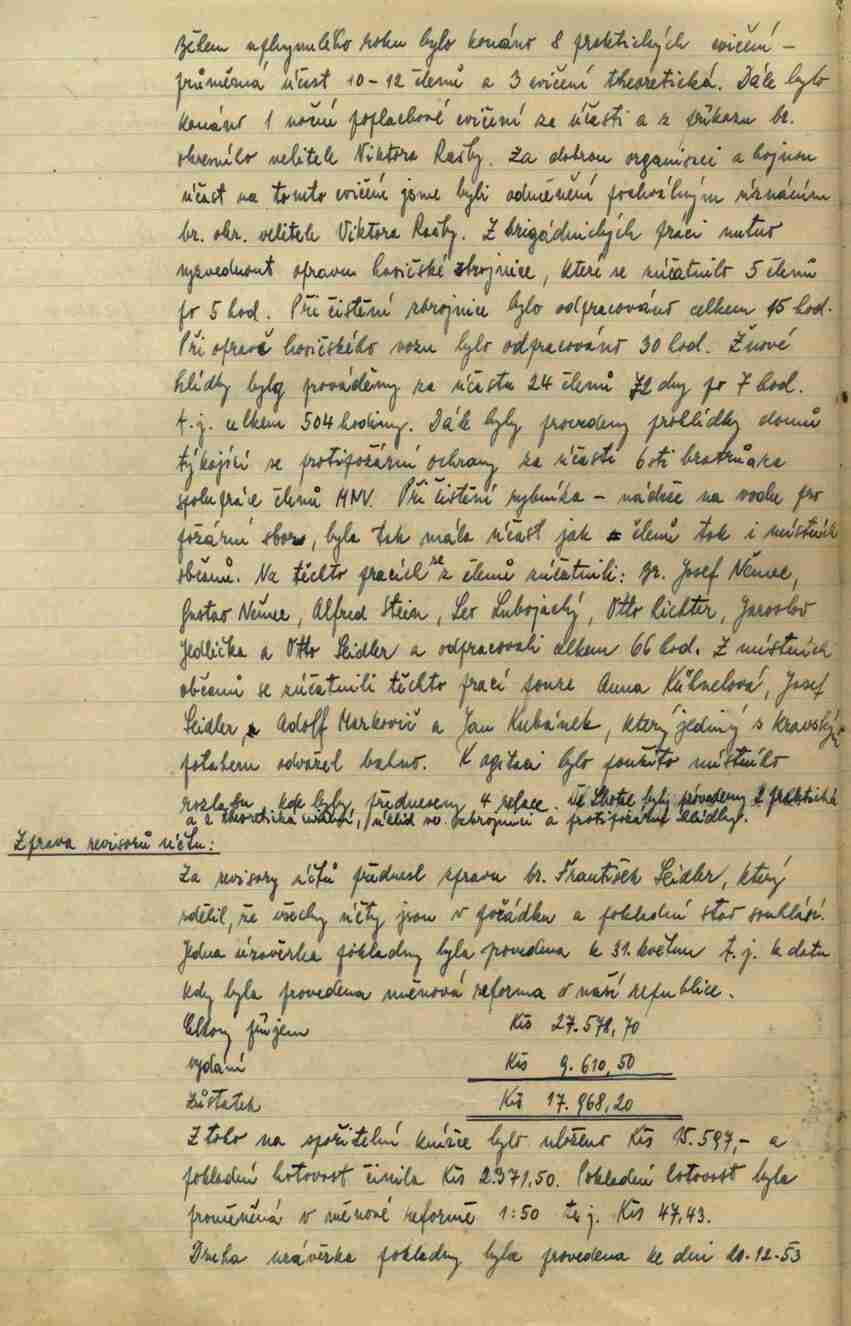 Během uplynulého roku bylo konáno 8 praktických cvičení –
průměrná účast 10-12 členů a 3 cvičení theoretická. Dále bylo
konáno 1 noční poplachové cvičení za účasti a z příkazu br.
okresního velitele Viktora Rašky. Za dobrou organisaci a hojnou
účast na tomto cvičení jsme byli odměněni pochvalným uznáním
br. okr. velitele Viktora Rašky. Z brigádnických prací nutno
vyzvednout opravu hasičské zbrojnice, které se zúčatnilo 5 členů
po 5 hod. Při čistění zbrojnice bylo odpracováno celkem 15 hod.
Při opravě hasičského vozu bylo odpracováno 30 hod. Žňové
hlídky byly prováděny za účasti 24 členů 72 dny po 7 hod.
t.j. celkem 504 hodiny. Dále byly provedeny prohlídky domů
týkající se protipožární ochrany za účasti 6 sti bratrů a za
spolupráce členů MNV. Při čistění rybníka – nádrže na vodu pro
požární sbor, byla tak malá účast jak členů tak i místních
občanů. Na těchto pracích se z členů zúčatnili: br. Josef Němec,
Gustav Němec, Alfred Stein, Leo Lubojacký, Otto Richter, Jaroslav
Jedlička a Otto Seidler a odpracovali celkem 66 hod. Z místních
občanů se zúčatnili těchto prací pouze Anna Kühnelová, Josef
Seidler, Adolf Markovič a Jan Kubánek, který jediný s kravským
potahem odvážel bahno. K agitaci bylo použito místního
rozhlasu kde byly předneseny 4 relace. Ve Lhotce byly provedeny 2 praktická
a 2 theoretická cvičení, úklid ve zbrojnici a protipožární hlídky.
Zpráva revisorů účtů:
Za revisory účtů přednesl zprávu br. František Seidler, který
sdělil, že všechny účty jsou v pořádku a pokladní stav souhlasí.
Jedna uzávěrka pokladny byla provedena k 31. květnu t.j. k datu
kdy byla provedena měnová reforma v naší republice.
Celkový příjem Kčs 27.578,70
vydání Kčs 9.610,50
zůstatek Kčs 17.968,20
Z toho na spořitelní knížce bylo uloženo Kčs 15.597,- a
pokladní hotovost činila Kčs 2.371,50. Pokladní hotovost byla
proměněná v měnové reformě 1:50 t.j. Kčs 47,43.
Druhá uzávěrka pokladny byla provedena ke dni 20-12-53